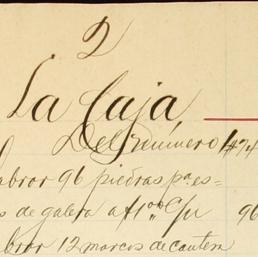 2
La Caja,
Del número 1
abrar 96 piedras pa. es-
s de galera a $1.00 c/u 96
brar 12 marcos de cantera